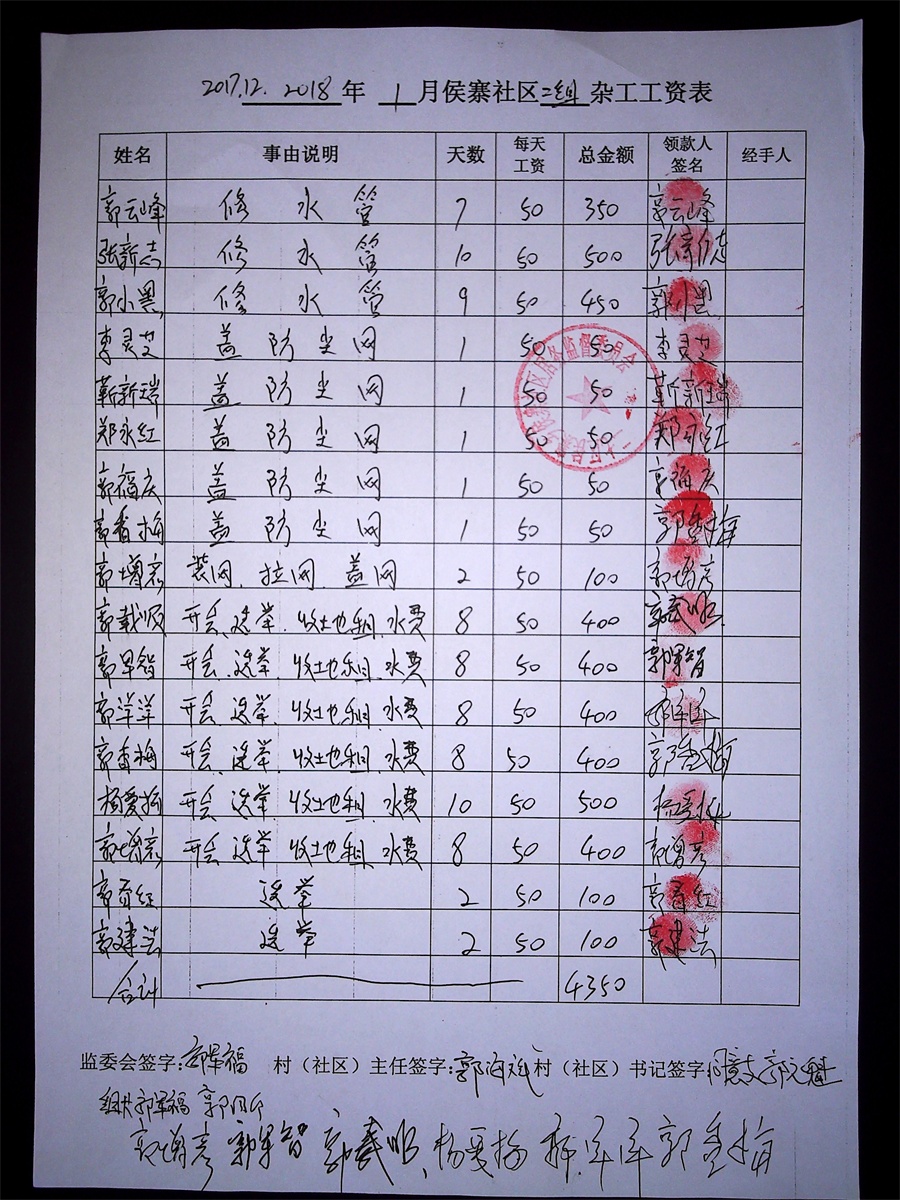 2017.12. 2018年 1月侯寨社区二组杂工工资表
姓名 事由说明 天数 每天工资 总金额 领款人签名 经手人
郭云峰 修水管 7 50 350 郭云峰
张新志 修水管 10 50 500 张新志
郭小黑 修水管 9 50 450 郭小黑
李灵芝 盖防尘网 1 50 50 李灵芝
靳新瑞 盖防尘网 1 50 50 靳新瑞
郑永红 盖防尘网 1 50 50 郑永红
郭福庆 盖防尘网 1 50 50 郭福庆
郭香梅 盖防尘网 1 50 50 郭香梅
郭增彦 装网、拉网、盖网 2 50 100 郭增彦
开会、选举、收土地租、水费 8 50 400
郭军智 开会、选举、收土地租、水费 8 50 400 郭军智
郭洋洋 开会、选举、收土地租、水费 8 50 400
郭香梅 开会、选举、收土地租、水费 8 50 400 郭香梅
杨爱梅 开会、选举、收土地租、水费 10 50 500 杨爱梅
郭增彦 开会、选举、收土地租、水费 8 50 400 郭增彦
选举 2 50 100
郭建法 选举 2 50 100 郭建法
合计 4350
监委会签字:郭军福 村（社区）主任签字: 村（社区）书记签字: 同意支
郭军福
郭增彦 郭军智 杨爱梅 郭香梅